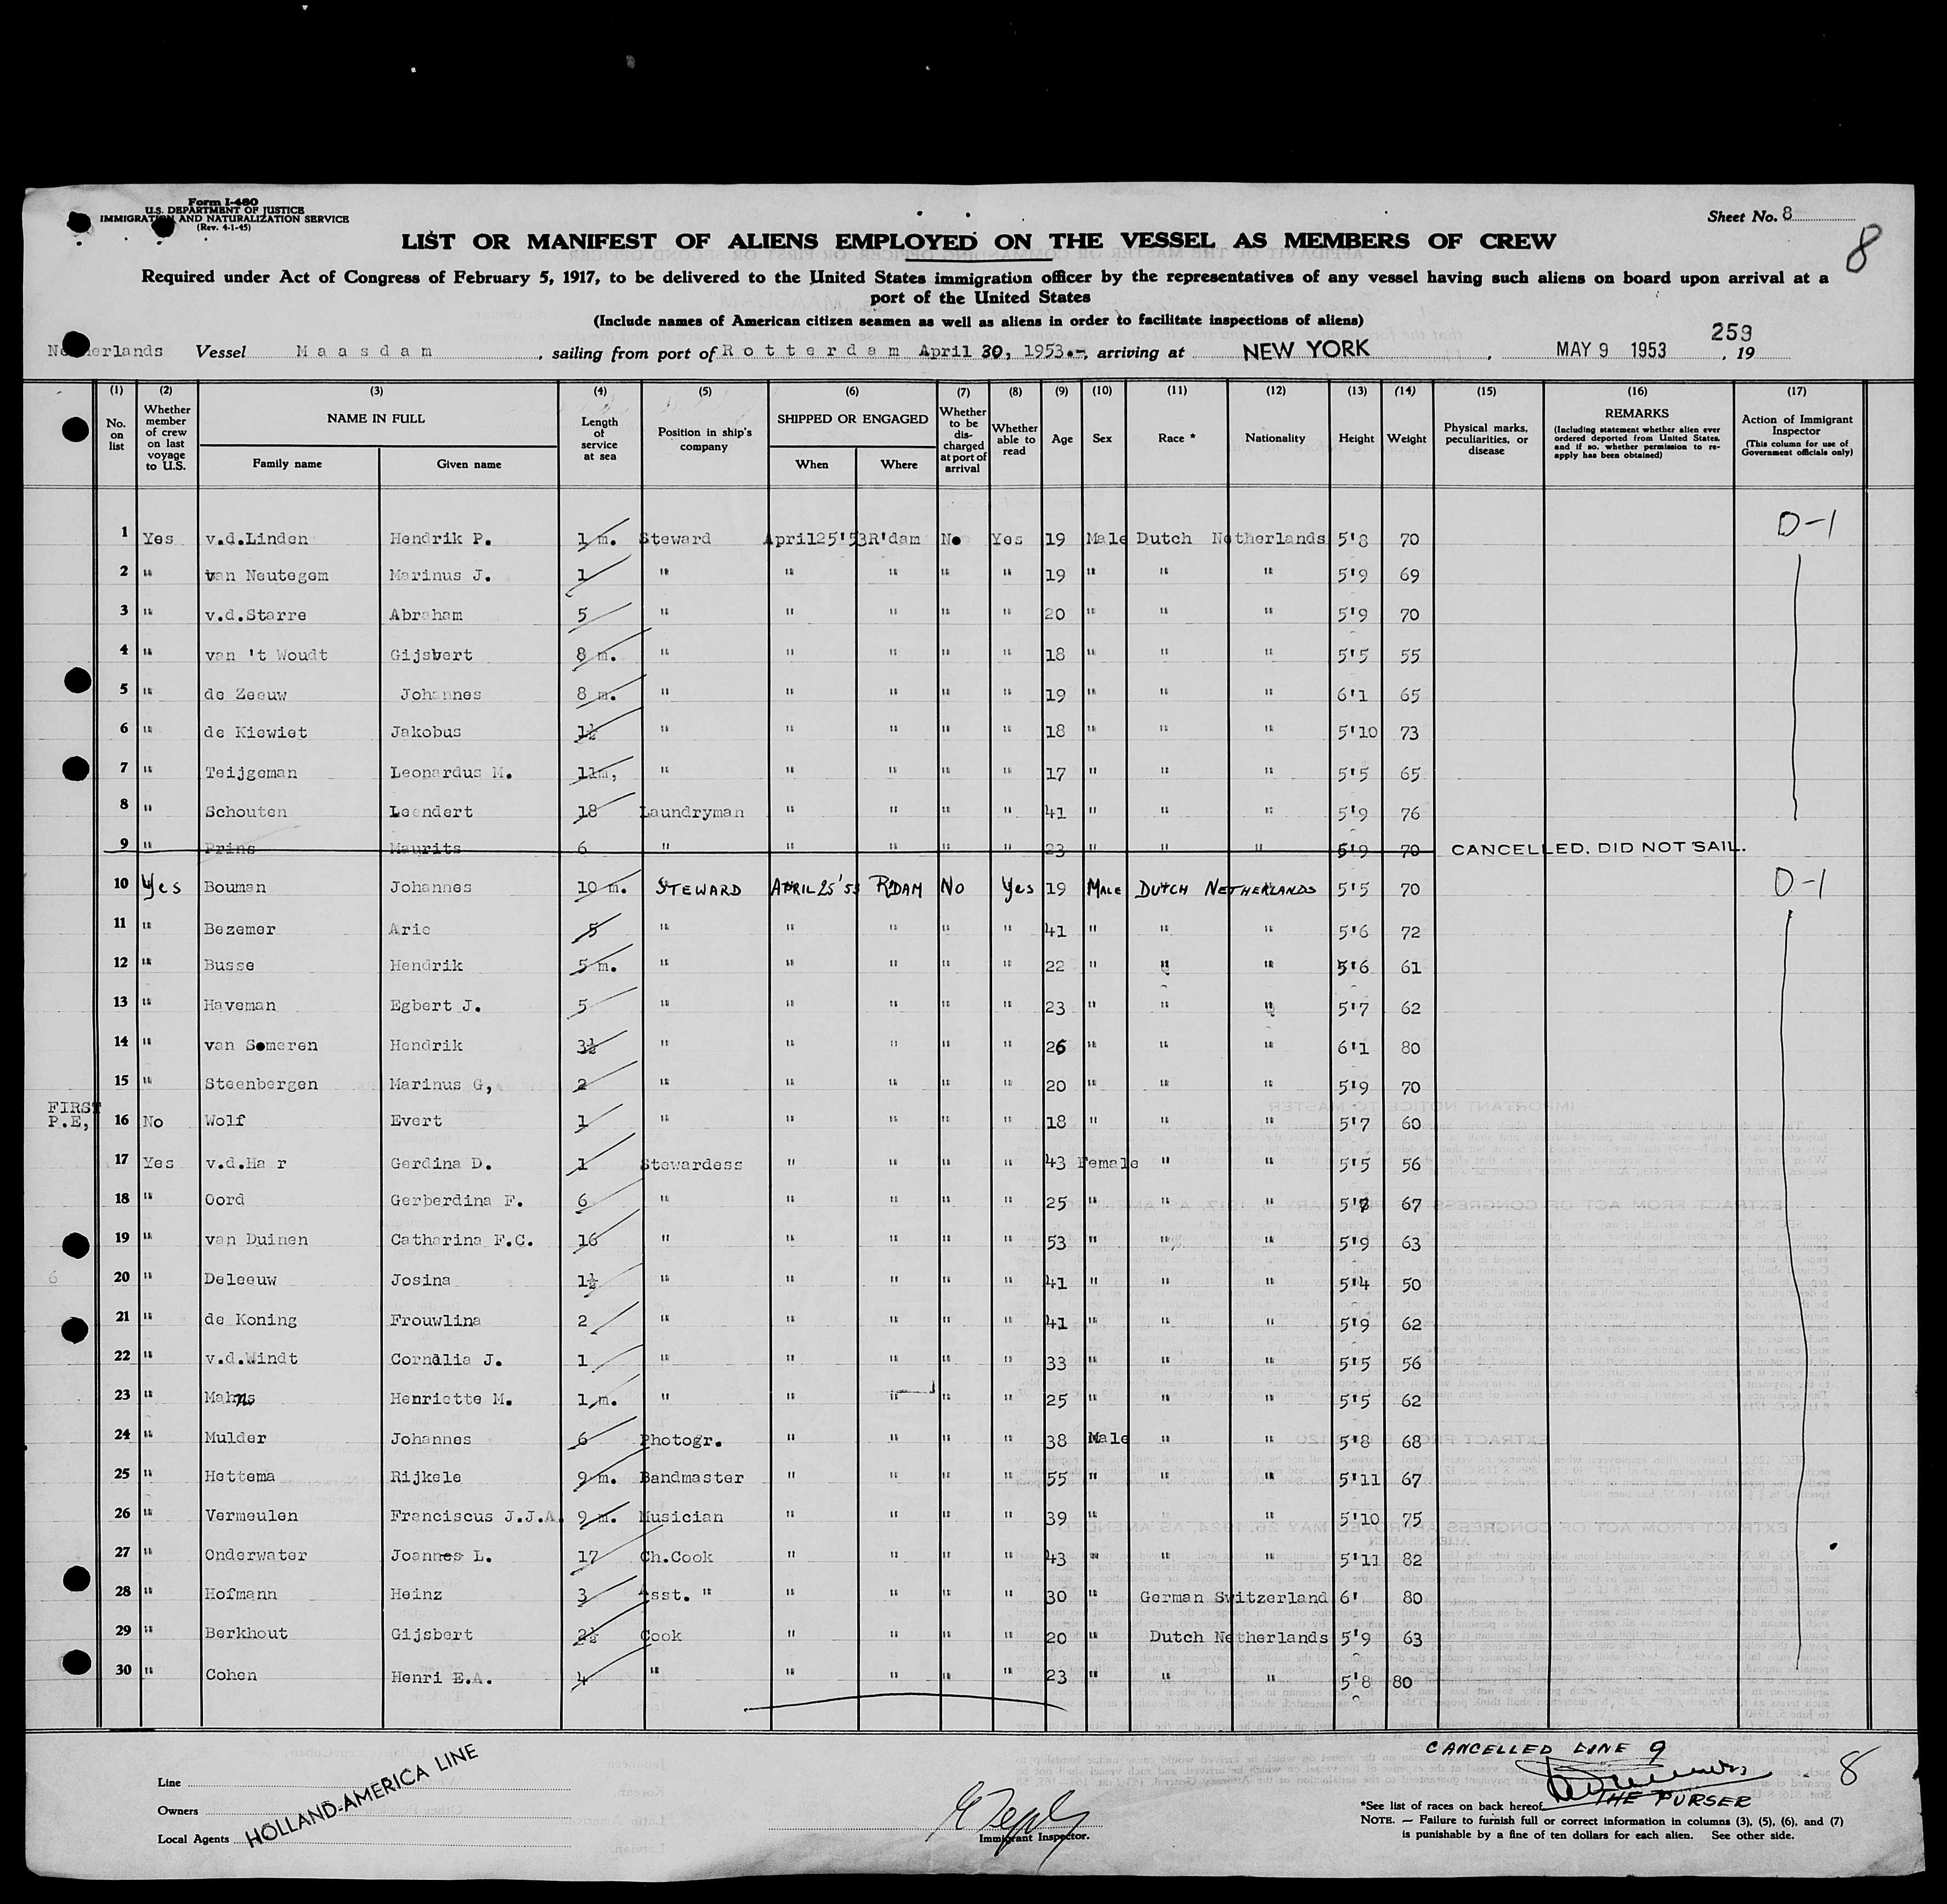 Form I-480
U.S. DEPARTMENT OF JUSTICE
IMMIGRATION AND NATURALIZATION SERVICE
(Rev. 4-1-45)
Sheet No. 8
8
LIST OR MANIFEST OF ALIENS EMPLOYED ON THE VESSEL AS MEMBERS OF CREW
Required under Act of Congress of February 5, 1917, to be delivered to the United States immigration officer by the representatives of any vessel having such aliens on board upon arrival at a
port of the United States
(Include names of American citizen seamen as well as aliens in order to facilitate inspections of aliens)
253
Netherlands Vessel Maasdam, sailing from port of Rotterdam April 30, 1953.-, arriving at NEW YORK, MAY 9 1953, 19
(1) (2) (3) (4) (5) (6) (7) (8) (9) (10) (11) (12) (13) (14) (15) (16) (17)
No. on list Whether member of crew on last voyage to U.S. NAME IN FULL Family name Given name Length of service at sea Position in ship's company SHIPPED OR ENGAGED When Where Whether to be discharged at port of arrival Whether able to read Age Sex Race * Nationality Height Weight Physical marks, peculiarities, or disease REMARKS (Including statement whether alien ever ordered deported from United States, and if so, whether permission to re-apply has been obtained) Action of Immigrant Inspector (This column for use of Government officials only)
1 Yes v.d.Linden Hendrik P. 1 m. Steward April25'53 R'dam No Yes 19 Male Dutch Netherlands 5'8 70 D-1
2 " van Neutegem Marinus J. 1 " " " " " 19 " " " 5'9 69
3 " v.d.Starre Abraham 5 " " " " " 20 " " " 5'9 70
4 " van 't Woudt Gijsbert 8 m. " " " " " 18 " " " 5'5 55
5 " de Zeeuw Johannes 8 m. " " " " " 19 " " " 6'1 65
6 " de Kiewiet Jakobus 1½ " " " " " 18 " " " 5'10 73
7 " Teijgeman Leonardus M. 11m, " " " " " 17 " " " 5'5 65
8 " Schouten Leendert 18 Laundryman " " " " 41 " " " 5'9 76
9 " Prins Maurits 6 " " " " " 23 " " " 5'9 70 CANCELLED. DID NOT SAIL.
10 Yes Bouman Johannes 10 m. STEWARD APRIL 25'53 R'DAM No Yes 19 MALE DUTCH NETHERLANDS 5'5 70 D-1
11 " Bezemer Arie 5 " " " " " 41 " " " 5'6 72
12 " Busse Hendrik 5 m. " " " " " 22 " " " 5'6 61
13 " Haveman Egbert J. 5 " " " " " 23 " " " 5'7 62
14 " van Someren Hendrik 3½ " " " " " 26 " " " 6'1 80
15 " Steenbergen Marinus G, 2 " " " " " 20 " " " 5'9 70
FIRST
P.E, 16 No Wolf Evert 1 " " " " " 18 " " " 5'7 60
17 Yes v.d.Ha r Gerdina D. 1 Stewardess " " " " 43 Female " " 5'5 56
18 " Oord Gerberdina F. 6 " " " " " 25 " " " 67
19 " van Duinen Catharina F.C. 16 " " " " " 53 " " " 5'9 63
6 20 " Deleeuw Josina 1½ " " " " " 41 " " " 5'4 50
21 " de Koning Frouwlina 2 " " " " " 41 " " " 5'9 62
22 " v.d.Windt Cornelia J. 1 " " " " " 33 " " " 5'5 56
23 " Henriette M. 1 m. " " " " " 25 " " " 5'5 62
24 " Mulder Johannes 6 Photogr. " " " " 38 Male " " 5'8 68
25 " Hettema Rijkele 9 m. Bandmaster " " " " 55 " " " 5'11 67
26 " Vermeulen Franciscus J.J.A. 9 m. Musician " " " " 39 " " " 5'10 75
27 " Onderwater Joannes L. 17 Ch.Cook " " " " 43 " " " 5'11 82
28 " Hofmann Heinz 3 Asst. " " " " " 30 " German Switzerland 6' 80
29 " Berkhout Gijsbert 2½ Cook " " " " 20 " Dutch Netherlands 5'9 63
30 " Cohen Henri E.A. 4 " " " " " 23 " " " 5'8 80
CANCELLED LINE 9
THE PURSER
8
Line
Owners
Local Agents
HOLLAND-AMERICA LINE
Immigrant Inspector.
*See list of races on back hereof.
NOTE. — Failure to furnish full or correct information in columns (3), (5), (6), and (7)
is punishable by a fine of ten dollars for each alien. See other side.